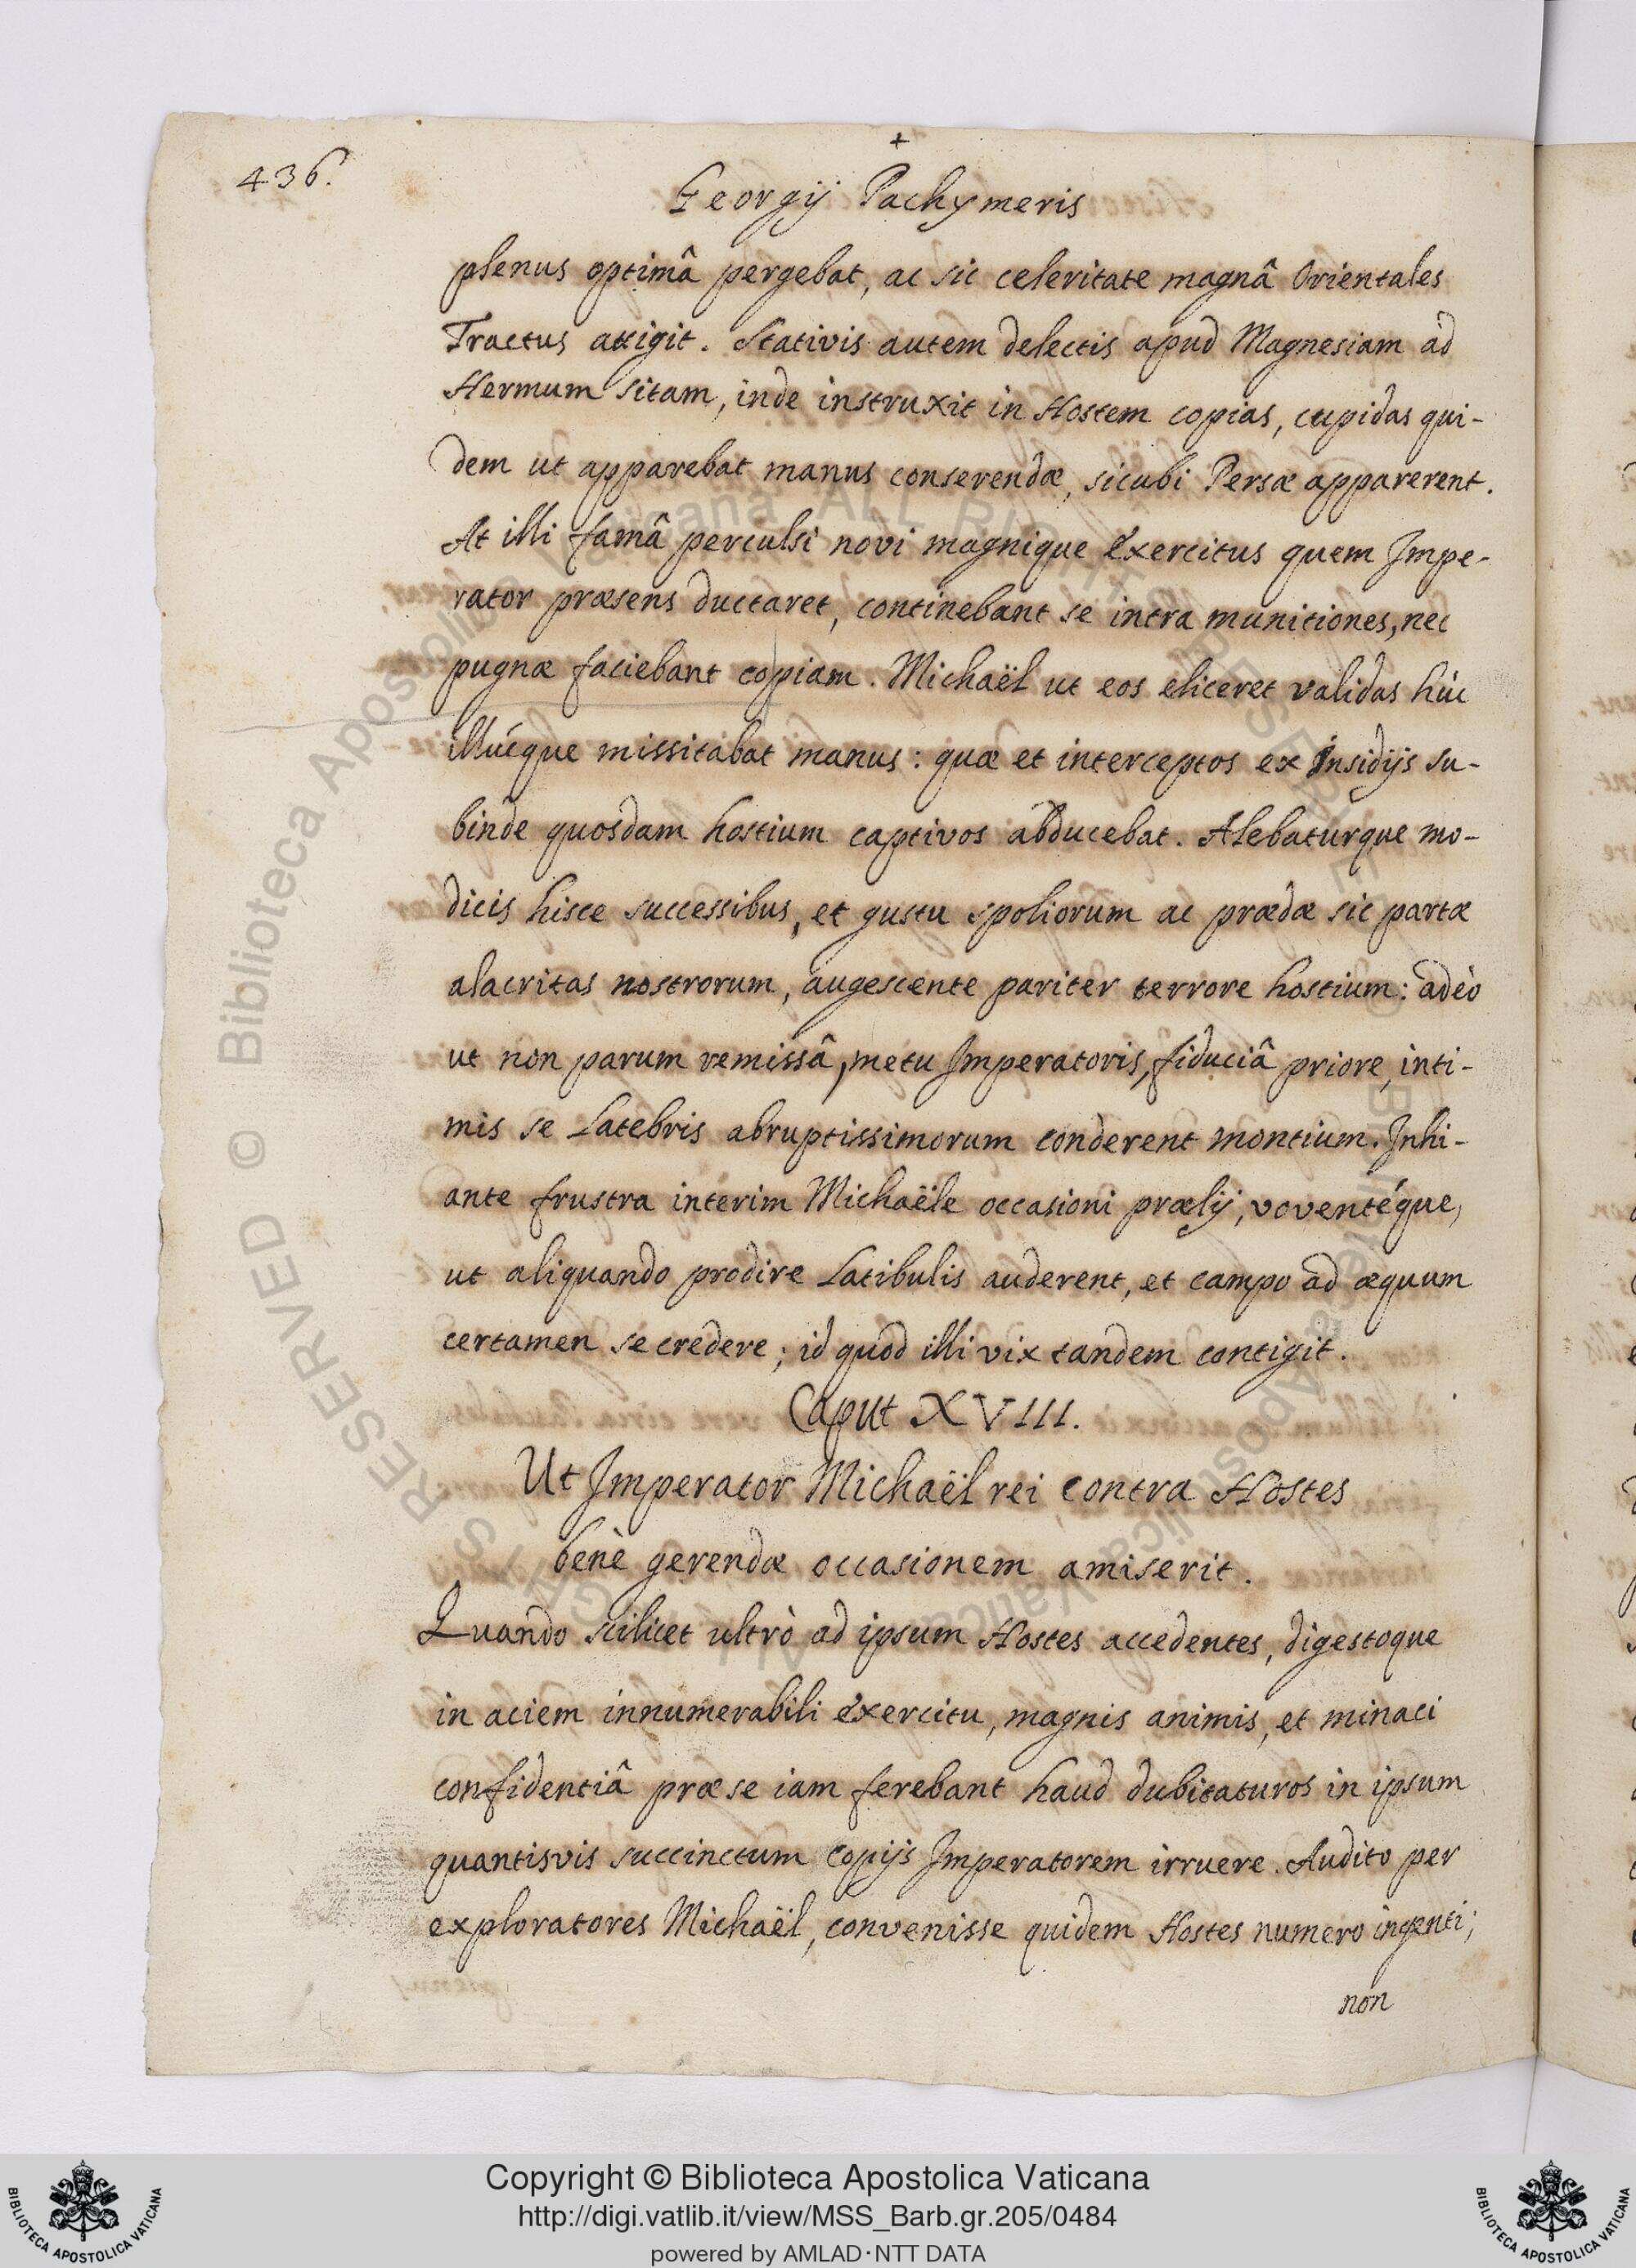 436.
+
Georgij Pachymeris
plenus optimâ pergebat, ac sic celeritate magnâ Orientales
Tractus attigit. Stativis autem delectis apud Magnesiam ad
Hermum sitam, inde instruxit in Hostem copias, cupidas qui-
dem ut apparebat manus conserendæ, sicubi Persæ apparerent.
At illi famâ perculsi novi magnique Exercitus quem Impe-
rator præsens ductaret, continebant se intra munitiones, nec
pugnæ faciebant copiam. Michaël ut eos eliceret validas húc
illúcque missitabat manus: quæ et interceptos ex insidijs su-
binde quosdam hostium captivos abducebat. Alebaturque mo-
dicis hisce successibus, et gustu spoliorum ac prædæ sic partæ
alacritas nostrorum, augescente pariter terrore hostium: adeò
ut non parum remissâ, metu Imperatoris, fiduciâ priore, inti-
mis se Latebris abruptissimorum conderent montium. Inhi-
ante frustra interim Michaële occasioni prælij, voventéque,
ut aliquando prodire Latibulis auderent, et campo ad æquum
certamen se credere; id quod illi vix tandem contigit.
Caput XVIII.
Ut Imperator Michaël rei contra Hostes
benè gerendæ occasionem amiserit.
Quando scilicet ultrò ad ipsum Hostes accedentes, digestoque
in aciem innumerabili Exercitu, magnis animis, et minaci
confidentiâ præ se iam ferebant haud dubitaturos in ipsum
quantisvis succinctum copijs Imperatorem irruere. Audito per
exploratores Michaël, convenisse quidem Hostes numero ingenti;
non
© Biblioteca Apostolica Vaticana ALL RIGHTS RESERVED
Copyright © Biblioteca Apostolica Vaticana
http://digi.vatlib.it/view/MSS_Barb.gr.205/0484
powered by AMLAD · NTT DATA
BIBLIOTECA APOSTOLICA VATICANA
BIBLIOTECA APOSTOLICA VATICANA